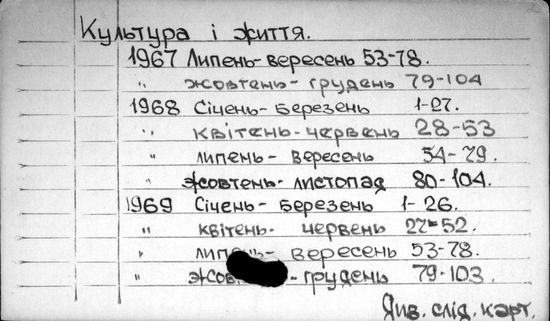 Культура і життя.
1967 Липень-вересень 53-78.
" жовтень-грудень 79-104
1968 Січень-березень 1-27.
" квітень-червень 28-53
" липень-вересень 54-79.
" жовтень-листопад 80-104.
1969 Січень-березень 1-26.
" квітень-червень 27-52.
" липень-вересень 53-78.
" -грудень 79-103.
Див. слід. карт.